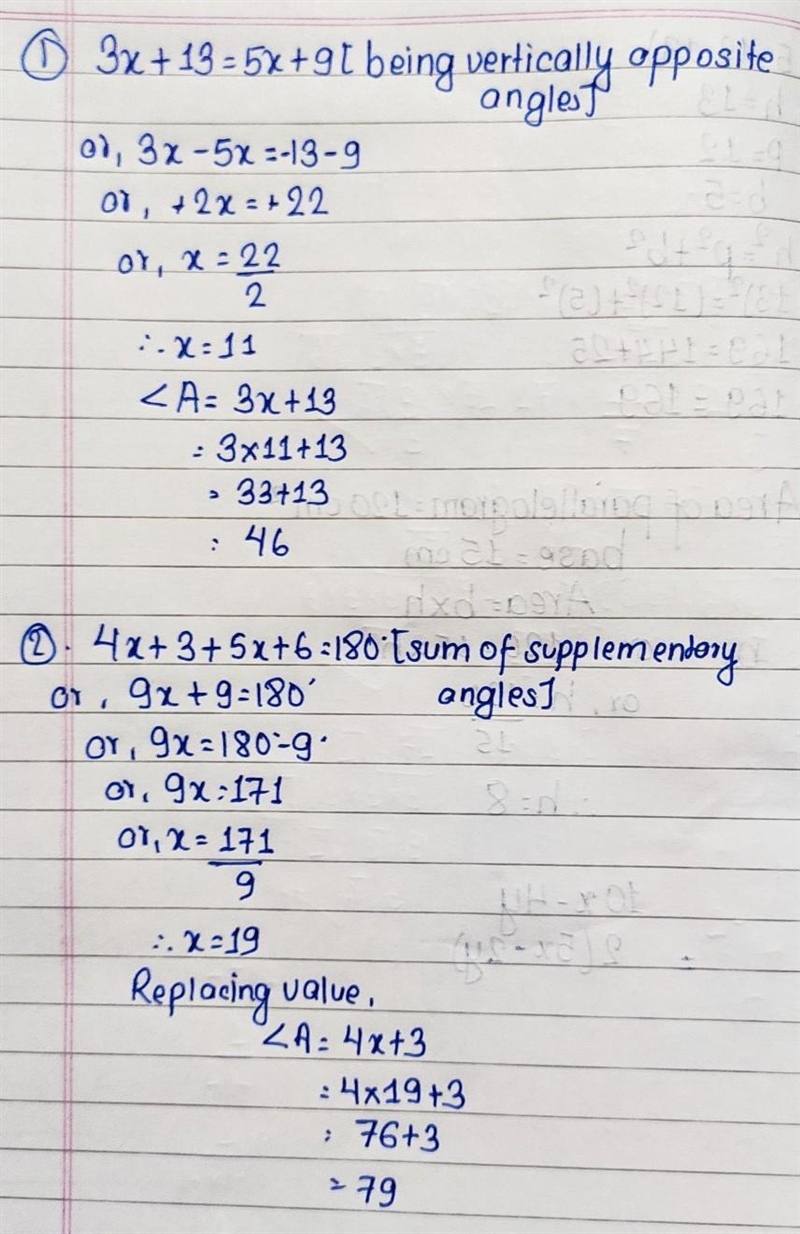 ① 3x+13=5x+9 [being vertically opposite
angles]
or, 3x-5x=-13-9
or, +2x=+22
or, x=22/2
∴x=11
∠A= 3x+13
= 3×11+13
= 33+13
= 46
②. 4x+3+5x+6=180° [sum of supplementary
or, 9x+9=180° angles]
or, 9x=180°-9°
or, 9x=171
or, x=171/9
∴x=19
Replacing value,
∠A=4x+3
=4×19+3
= 76+3
=79